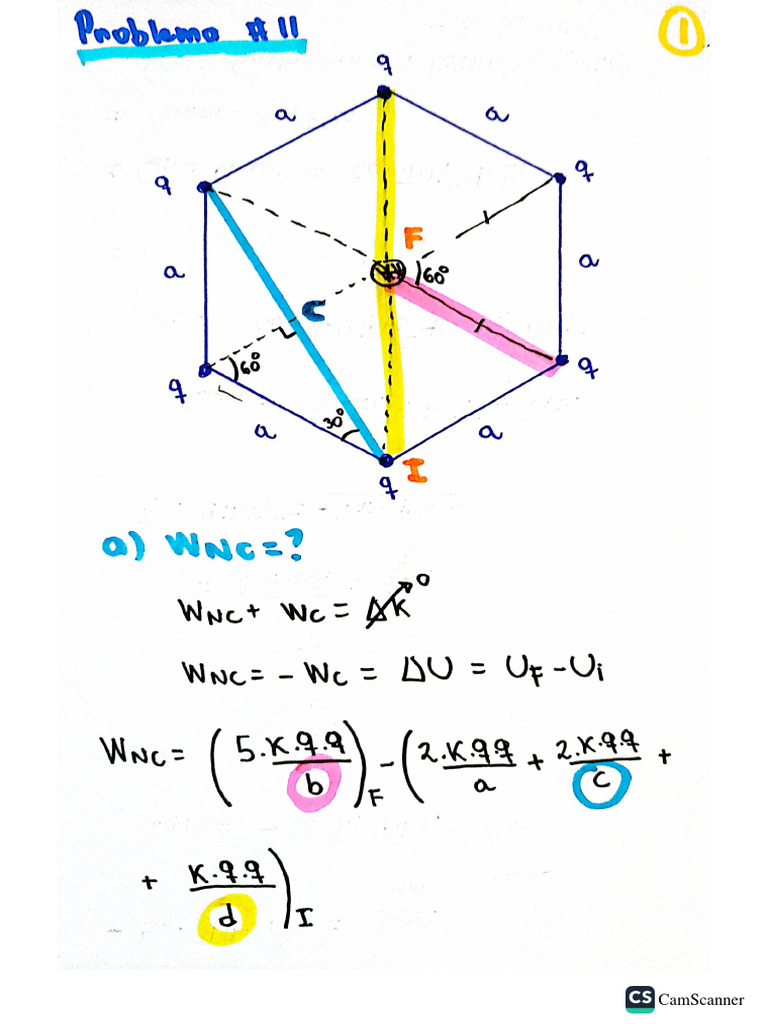 Problema #11
1
q
a
a
q
q
F
a
60°
a
C
q
60°
q
30°
a
a
I
q
a) WNC = ?
WNC + WC = ΔK 0
WNC = - WC = ΔU = UF - Ui
WNC = (5.K.q.q/b)F - (2.K.q.q/a + 2.K.q.q/c +
+ K.q.q/d)I
CS CamScanner